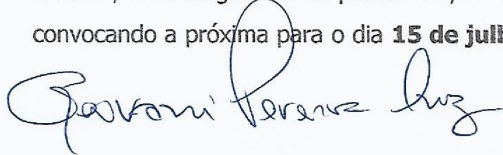 convocando a próxima para o dia 15 de julh
Geovani Pereira Luz